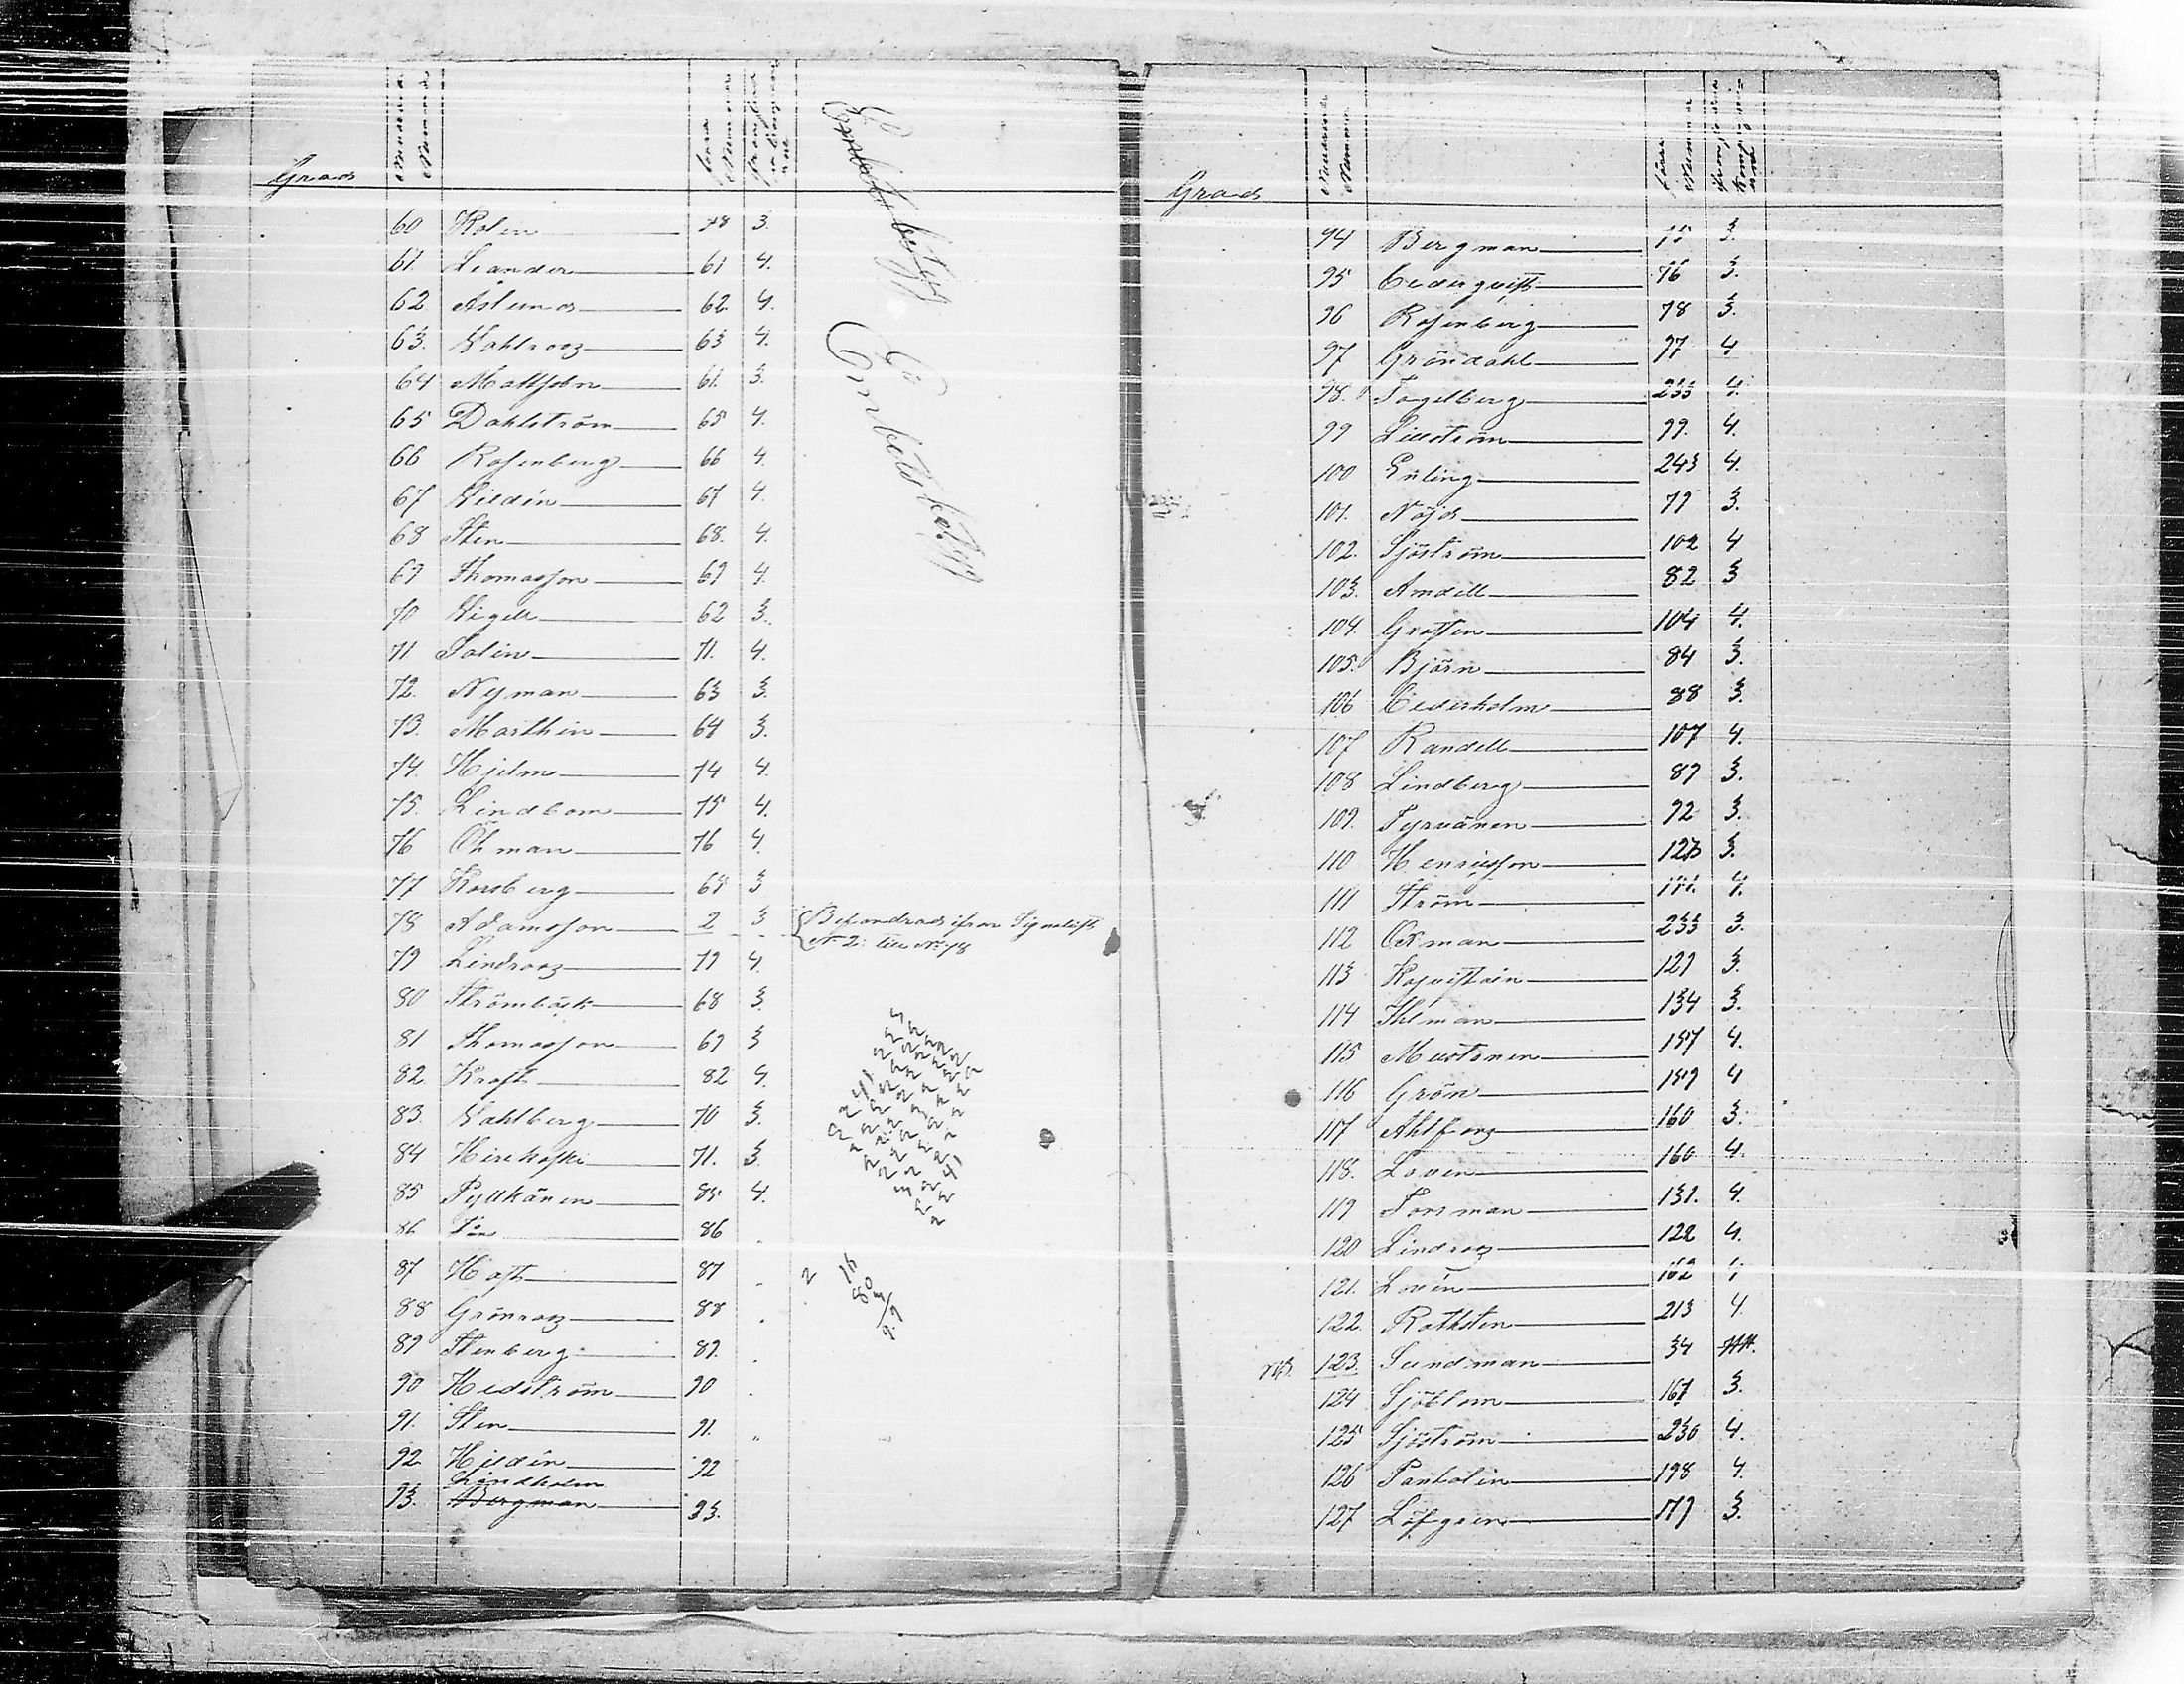 Grad Nuvarande Nummer förra Nummer
60 Rolin 78 3.
61. Leander 61 4.
62 Åslund 62 4.
63. Wahlroos 63 4.
64 Mattsson 61. 3.
65 Dahlström 65 4.
66 Rosenberg 66 4.
67 Wildén 67 4.
68 Sten 68. 4.
69 Thomasson 69 4.
70 Wigell 62 3.
71 Salin 71. 4.
72. Nyman 63 3.
73. Marthin 64 3.
74. Hjelm 74 4.
75. Lindbom 75 4.
76 Öhman 76 4.
77 Korsberg 65 3
78 Adamsson 2 3 ifrån N. 2. till N. 78
79 Lindroos 79 4.
80 Strömbäck 68 3.
81 Thomasson 69 3
82 Kraft 82 4.
83. Wahlberg 70 3.
84 71. 3.
85 Pylkänen 85 4.
86 86
87 Haft 87
88 Grönroos 88
89 Stenberg 89.
90 Hedström 90
91. Sten 91.
92 Hildén 92
Lindholm
93. Bergman 93.
Embetsbetyg
Grad Nuvarande Nummer förra Nummer
94 Bergman 75 3.
95 Cederqvist 76 3.
96 Rosenberg 78 3.
97 Gröndahl 97 4
98. Fogelberg 233 4.
99 Lillström 99. 4.
100 Enling 243 4.
101. Nöjd 79 3.
102. Sjöström 102 4
103. Amdell 82 3
104. Grotten 104 4.
105. Björn 84 3.
106 Cederholm 88 3.
107 Randell 107 4.
108 Lindberg 89 3.
109. Tyrvänen 92 3.
110 Henricsson 123 3.
111 Ström 111. 4.
112 Oxman 233 3.
113 129 3.
114 Ihlman 134 3.
115 Mustonen 157 4.
116 Grön 159 4
117 Ahlfors 160 3.
118. Loven 160 4.
119 Forsman 131. 4.
120 Lindroos 122 4.
121. Lovén 162 4
122. Rothsten 213 4
NB. 123. Sundman 34
124 Sjöblom 167 3.
125 Sjöström 230 4.
126 Pantolin 198 4.
127 Löfgren 179 3.